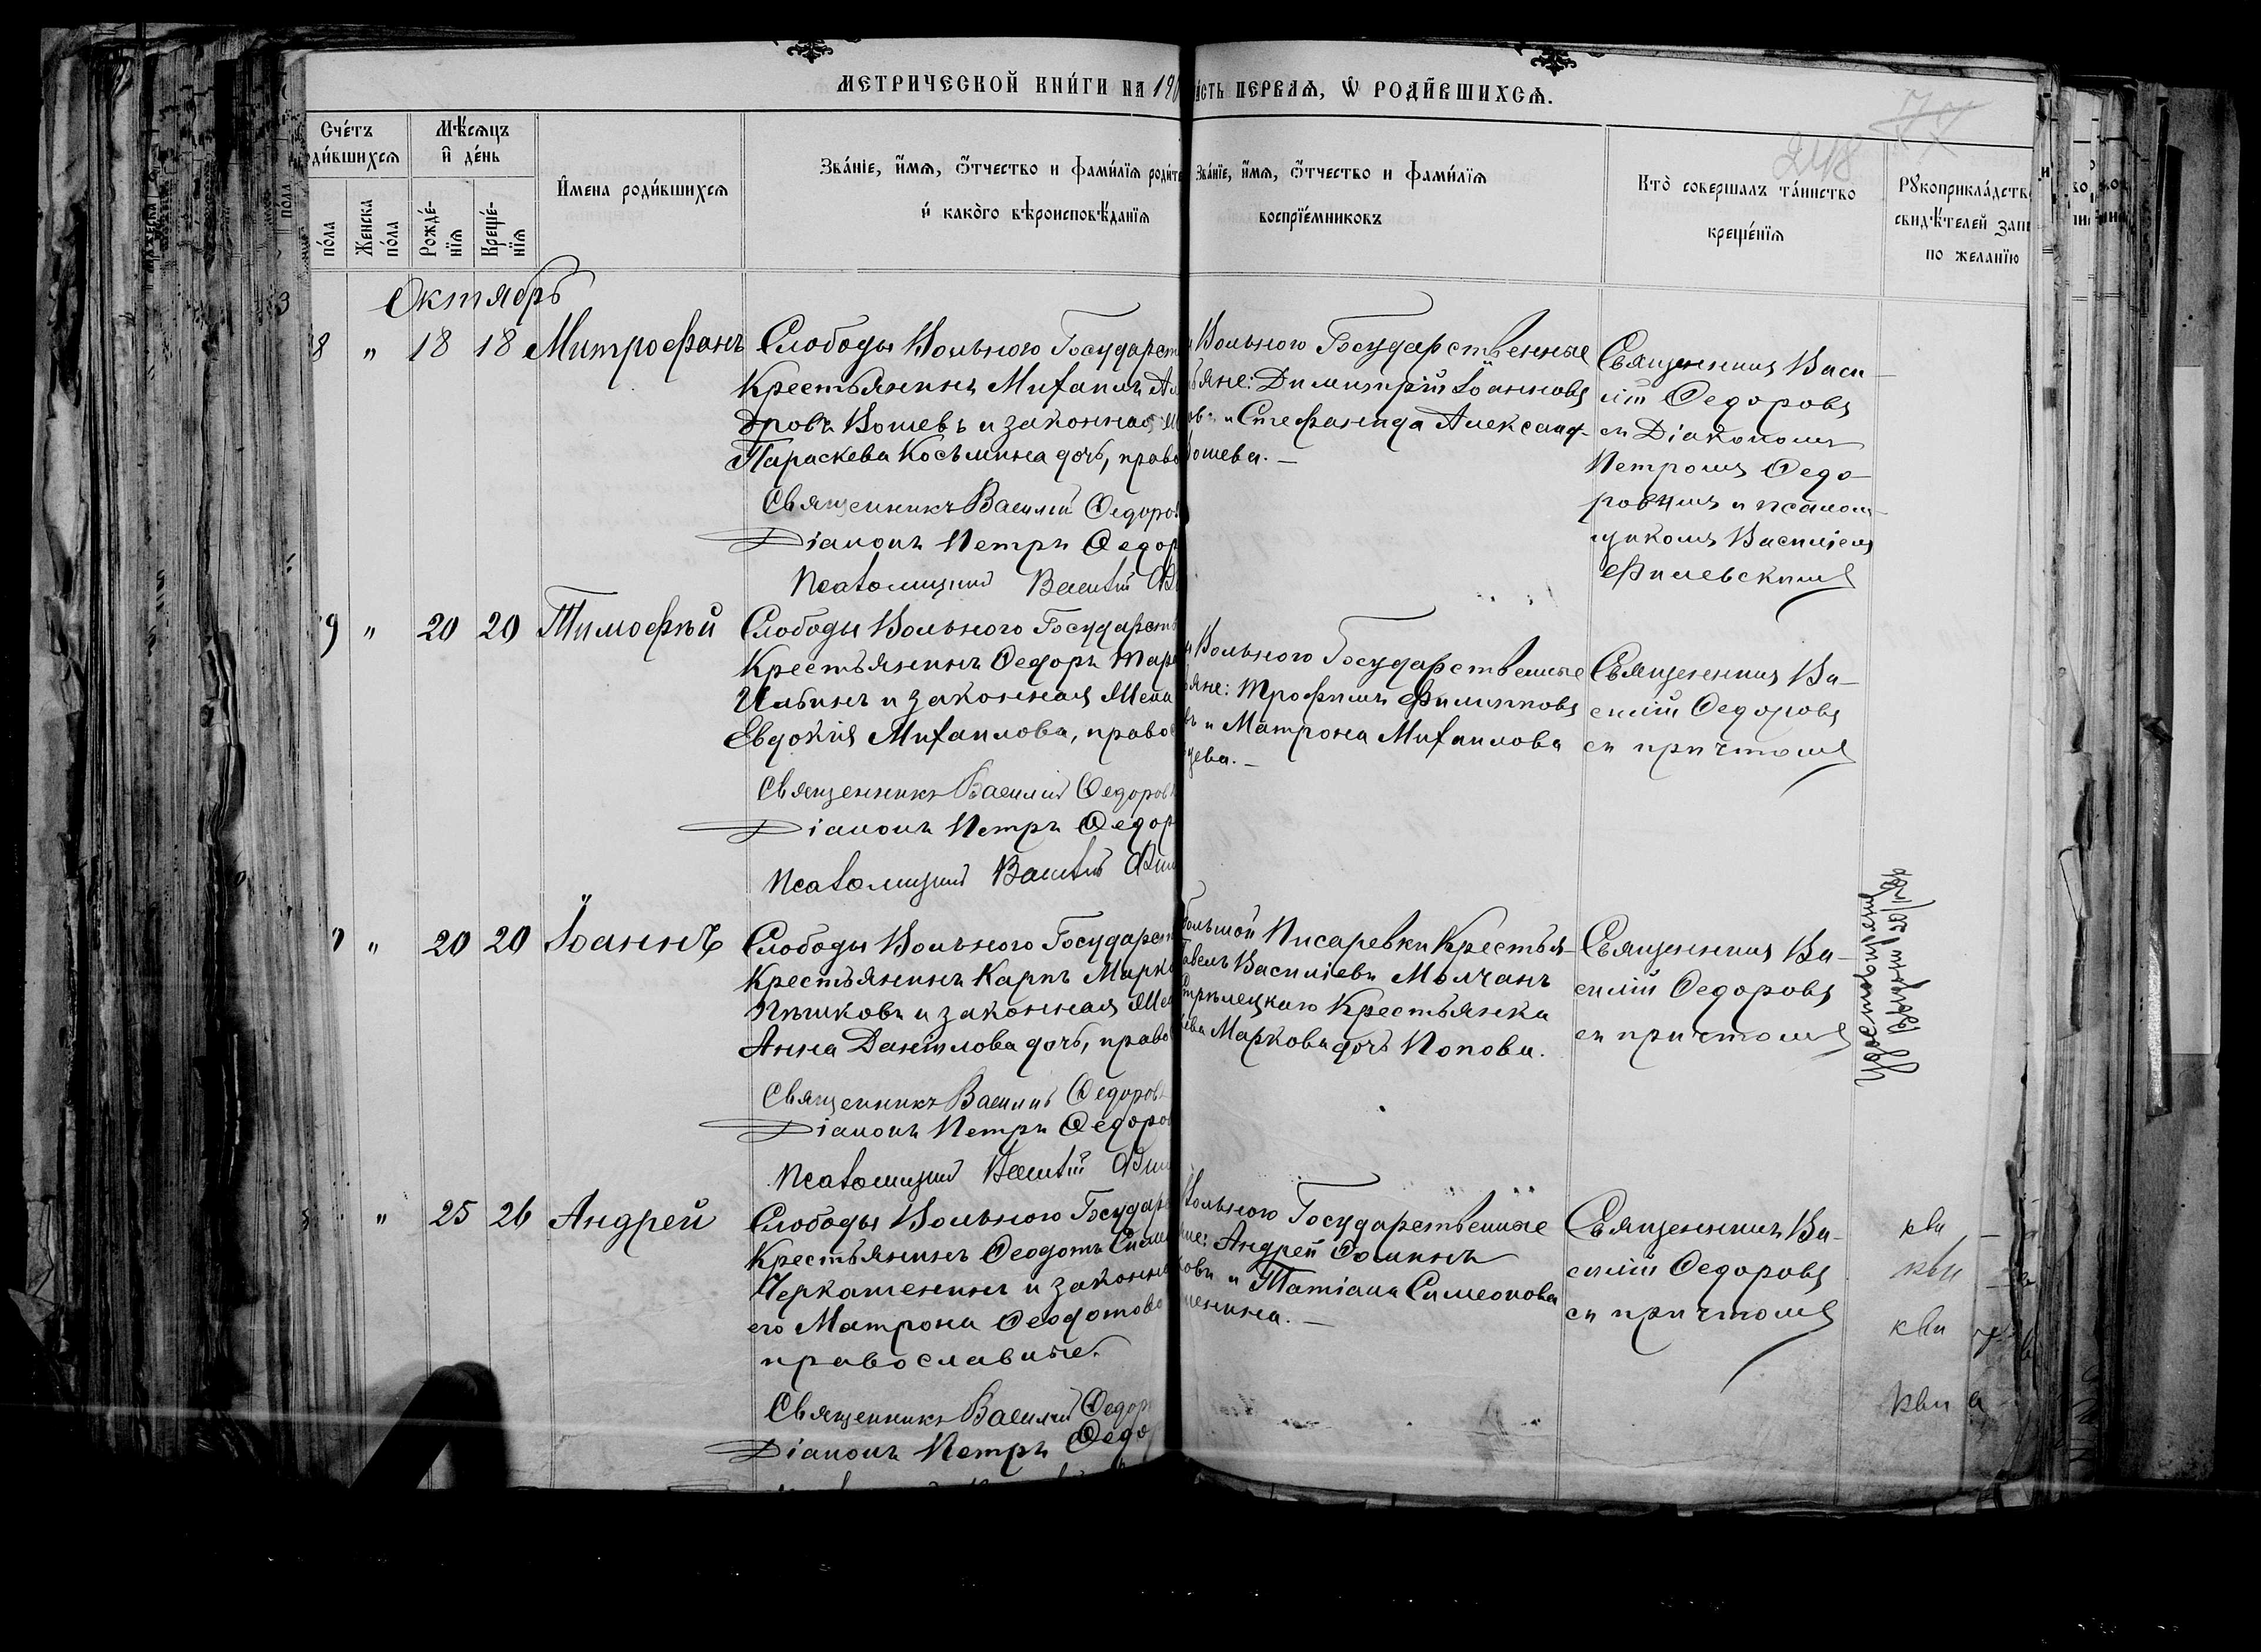 МЕТРИЧЕСКОЙ КНИ́ГИ НА 190
сть ПЕРВАѦ, Ѡ҆ РОДИ́ВШИХСѦ.
77
248
Сче́тъ
оди́вшихсѧ
Мѣ́сѧцъ
и҆ де́нь
по́ла
Же́нска
по́ла
Рожде́-
нїѧ
Креще́-
нїѧ
И҆мена роди́вшихсѧ
Зва́нїе, и҆́мѧ, ѻ҆́тчество и фами́лїѧ роди́те
и҆ како́гѡ вѣроисповѣ́данїѧ
Зва́нїе, и҆́мѧ, ѻ҆́тчество и фами́лїѧ
воспрїе́мниковъ
Кто̀ соверша́лъ та́инство
креще́нїѧ
Рꙋкоприкла́дств
свидѣ́телей запи
по жела́нїю
Октябрь
8 " 18 18 Митрофанъ
Слободы Вольного Государст
Крестьянинъ Михаилъ Ал
дровъ Вошевъ и законная
Параскева Косьмина дочь, право
Священникъ Василій Ѳедоров
Діаконъ Петръ Ѳедор
Псаломщикъ Василій
Вольного Государственные
яне: Димитрій Іоанновъ
овъ и Стефанида Александ-
ошева. —
Священникъ Васи-
лій Ѳедоровъ
съ Діакономъ
Петромъ Ѳедо-
ровымъ и псалом-
щикомъ Василіемъ
Филевскимъ
9 " 20 20 Тимофей
Слободы Вольного Государств
Крестьянинъ Ѳедоръ Тар
и законная Жена
Евдокія Михаилова, правос
Священникъ Василій Ѳедоровъ
Діаконъ Петръ Ѳедор
Псаломщикъ Василій Фил
Вольного Государственные
яне: Трофимъ Филипповъ
въ и Матрона Михаилова
цева. —
Священникъ Ва-
силій Ѳедоровъ
съ причтомъ
0 " 20 20 Іоаннъ
Слободы Вольного Государст
Крестьянинъ Карпъ Марк
Пѣшковъ и законная Жен
Анна Даніилова дочь, право
Священникъ Василій Ѳедоровъ
Діаконъ Петръ Ѳедоро
Псаломщикъ Василій Фил
Большой Писаревки Крестья-
Павелъ Василіевъ Молчанъ
Стрѣлецкаго Крестьянка
ева Маркова дочь Попова.
Священникъ Ва-
силій Ѳедоровъ
съ причтомъ
" 25 26 Андрей
Слободы Вольного Государс
Крестьянинъ Ѳеодотъ Симе
Черкашенинъ и законна
его Матрона Ѳеодотова
православные.
Священникъ Василій Ѳедор
Діаконъ Петръ Ѳедо
Вольного Государственные
яне: Андрей Ѳоминъ
ковъ и Татіана Симеонова
шенина. —
Священникъ Ва-
силій Ѳедоровъ
съ причтомъ